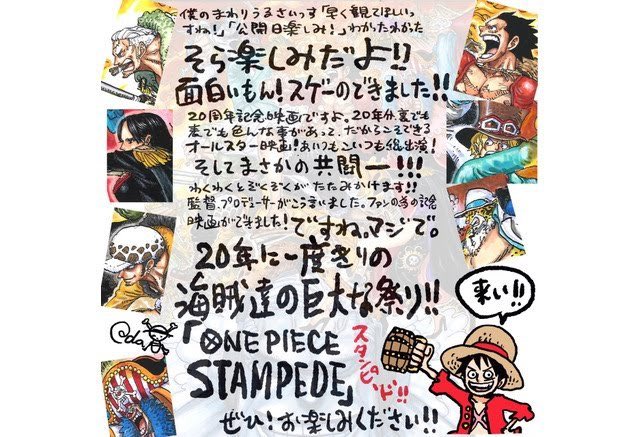 僕のまわりうるさいっす「早く観てほしいっ
すね!」「公開日楽しみ!」わかったわかった
そら楽しみだよ!!
面白いもん!スゲーのできました!!
20周年記念映画ですよ。20年分裏でも
表でも色んな事があって、だからこそできる
オールスター映画!あいつもこいつも総出演!
そしてまさかの共闘ー!!!
わくわくとぞくぞくがたたみかけます!!
監督、プロデューサーがこう言いました。ファンの為の
映画ができました!ですね。マジで。
20年に一度きりの
海賊達の巨大な祭り!!
「ONE PIECE
STAMPEDE」
スタンピード!!
ぜひ!お楽しみください!!
来い!!
Oda